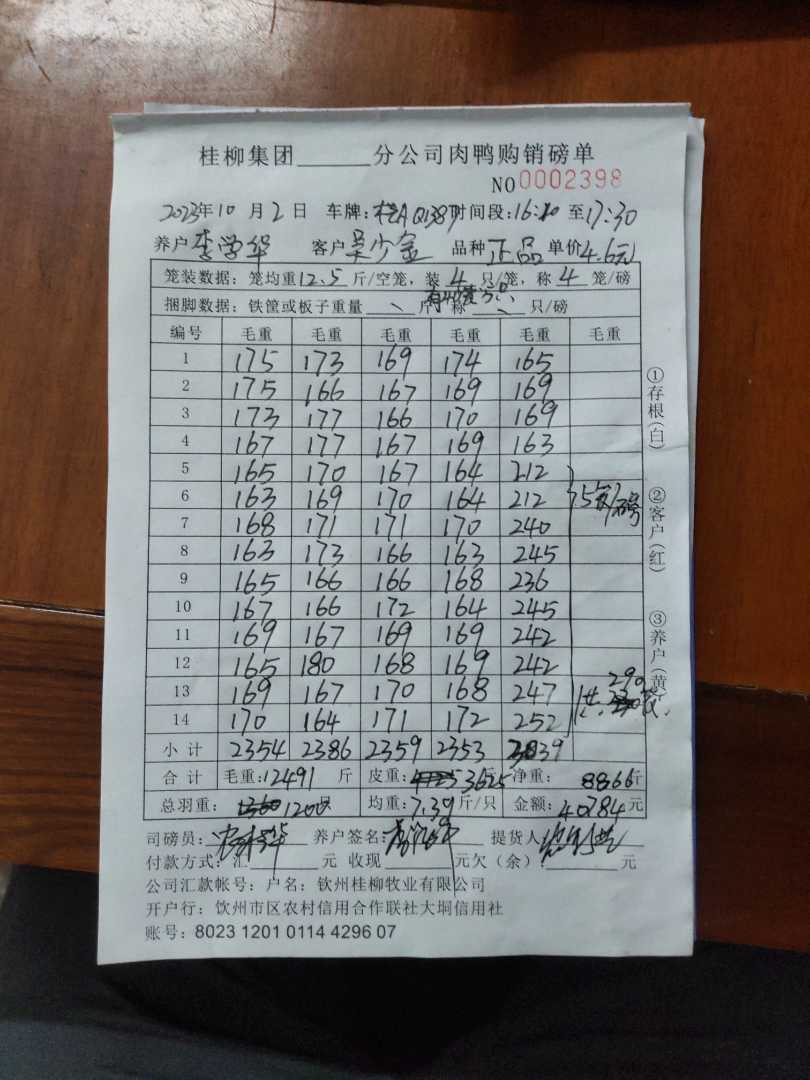 桂柳集团______分公司肉鸭购销磅单
NO 0002398
2023年10月2日 车牌:桂A 时间段:16:20 至17:30
养户李学华 客户吴少金 品种正品 单价4.6元
笼装数据: 笼均重12.5斤/空笼, 装4只/笼, 称4笼/磅
捆脚数据: 铁筐或板子重量 \ 斤, 称 \ 只/磅
编号 毛重 毛重 毛重 毛重 毛重 毛重
1 175 173 169 174 165
2 175 166 167 169 169
3 173 177 166 170 169
4 167 177 167 169 163
5 165 170 167 164 212
6 163 169 170 164 212
7 168 171 171 170 240
8 163 173 166 163 245
9 165 166 166 168 236
10 167 166 172 164 245
11 169 167 169 169 242
12 165 180 168 169 242
13 169 167 170 168 247
14 170 164 171 172 252
小计 2354 2386 2359 2353 3039
合计 毛重:12491斤 皮重:3625斤 净重: 8866斤
总羽重: 1200只 均重:7.39斤/只 金额:40784元
司磅员: 养户签名: 提货人:
付款方式:汇______元 收现______元欠(余):______元
公司汇款帐号: 户名: 钦州桂柳牧业有限公司
开户行: 钦州市区农村信用合作联社大垌信用社
账号: 8023 1201 0114 4296 07
①存根(白)
②客户(红)
③养户(黄)
290